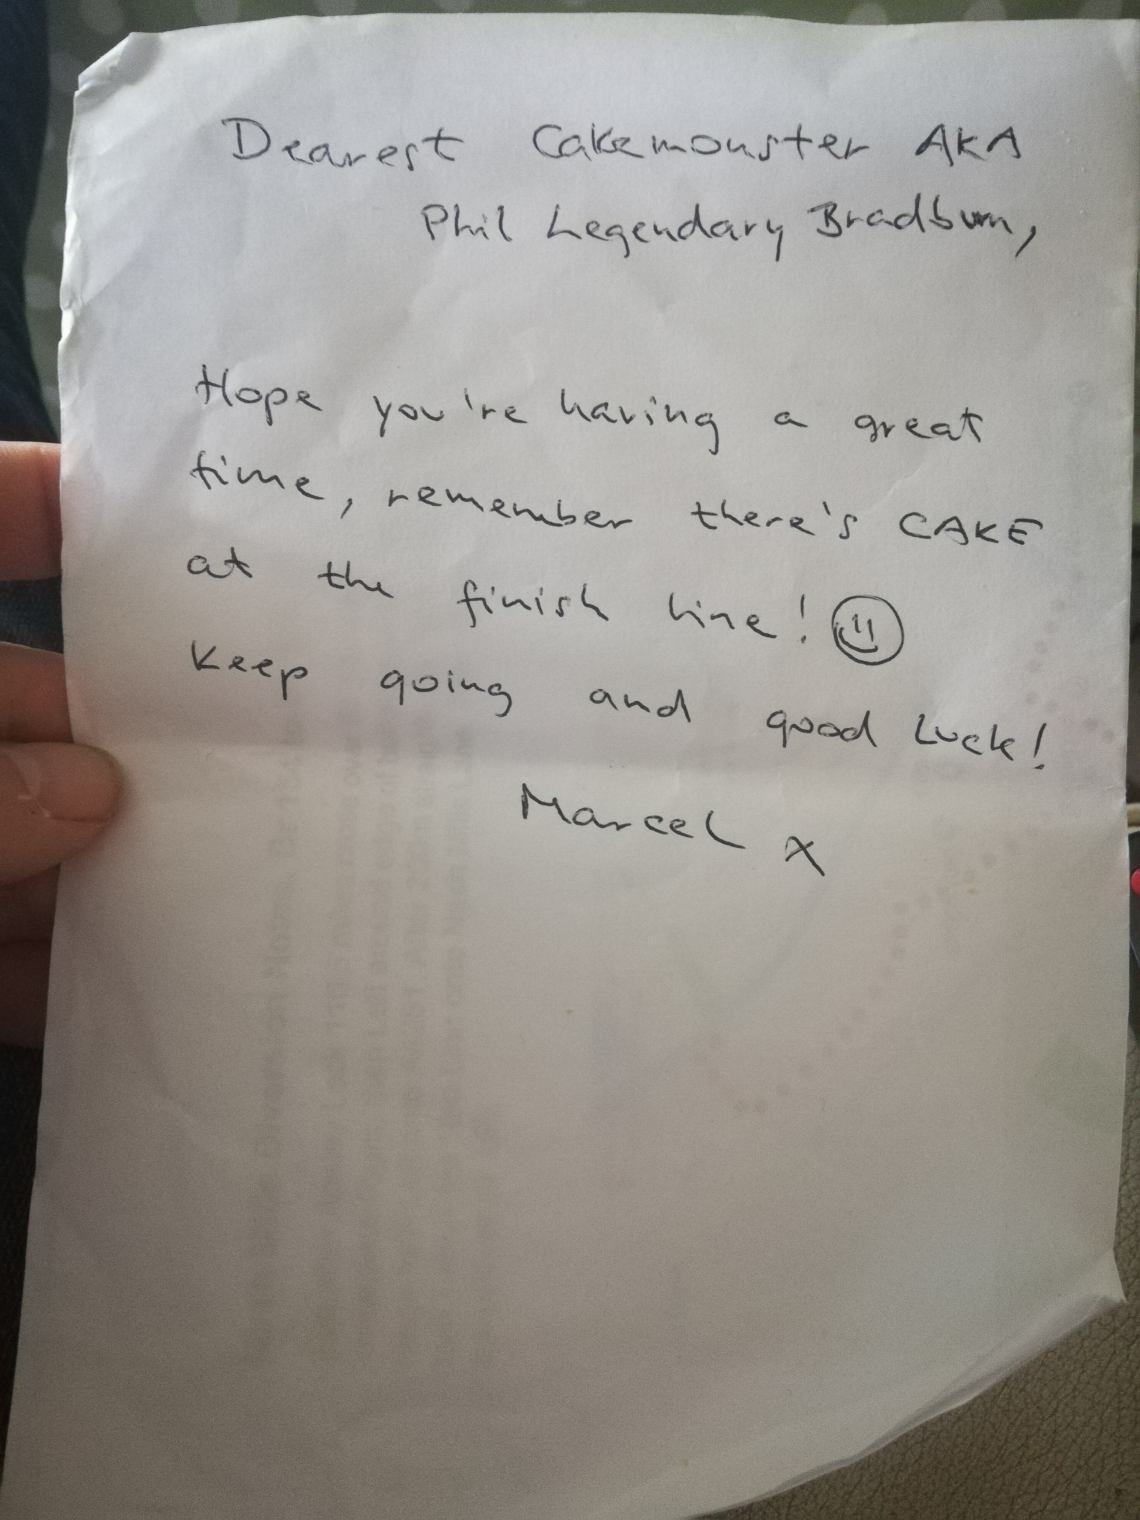 Dearest Cakemonster AKA
Phil Legendary Bradburn,
Hope you're having a great
time, remember there's CAKE
at the finish line!
Keep going and good luck!
Marcel x